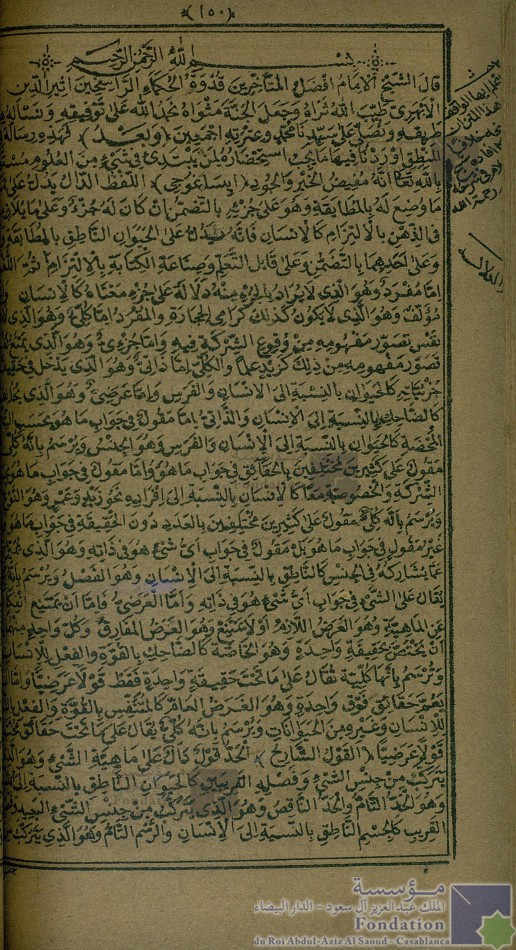 (١٥٠)
بسم الله الرحمن الرحيم
قال الشيخ الامام افضل المتأخرين قدوة الحكماء الراسخين اثير الدين
الابهرى طيب الله ثراه وجعل الجنة مثواه نحمد الله على توفيقه ونسأله
طريقه ونصلى على سيدنا محمد وعترته اجمعين (وبعد) فهذه رسالة
المنطق اوردنا فيها ما يجب استحضاره لمن يبتدئ فى شئ من العلوم
بالله تعالى انه مفيض الخير والجود (ايساغوجى) اللفظ الدال يدل على
ما وضع له بالمطابقة وهو على جزئه بالتضمن ان كان له جزء وعلى ما يلا
فى الذهن بالالتزام كالانسان فانه يدل على الحيوان الناطق بالمطابقة
وعلى احدهما بالتضمن وعلى قابل التعلم وصناعة الكتابة بالالتزام ثم
اما مفرد وهو الذى لا يراد بالجزء منه دلالة على جزء معناه كالانسان
مؤلف وهو الذى لا يكون كذلك كرامى الحجارة والمفرد اما كلى وهو الذى
نفس تصور مفهومه من وقوع الشركة فيه واما جزئى وهو الذى يمنع
تصور مفهومه من ذلك كزيد علما والكلى اما ذاتى وهو الذى يدخل فى
جزئياته كالحيوان بالنسبة الى الانسان والفرس واما عرضى وهو الذى
كالضاحك بالنسبة الى الانسان والذاتى اما مقول فى جواب ما هو بحسب
المحضة كالحيوان بالنسبة الى الانسان والفرس وهو الجنس ويرسم بانه كلى
مقول على كثيرين مختلفين بالحقائق فى جواب ما هو واما مقول فى جواب ما هو
الشركة والخصوصية معا كالانسان بالنسبة الى افراده نحو زيد وعمرو وهو
ويرسم بانه كلى مقول على كثيرين مختلفين بالعدد دون الحقيقة فى جواب ما هو
غير مقول فى جواب ما هو بل مقول فى جواب اى شئ هو فى ذاته وهو الذى
عما يشاركه فى الجنس كالناطق بالنسبة الى الانسان وهو الفصل ويرسم بانه
يقال على الشئ فى جواب اى شئ هو فى ذاته واما العرضى فاما ان يمتنع
عن الماهية وهو العرض اللازم او لا يمتنع وهو العرض المفارق وكل واحد منهما
ان يختص بحقيقة واحدة وهو الخاصة كالضاحك بالقوة والفعل للانسان
وترسم بانها كلية تقال على ما تحت حقيقة واحدة فقط قولا عرضيا
يعم حقائق فوق واحدة وهو العرض العام كالمتنفس بالقوة والفعل
للانسان وغيره من الحيوانات ويرسم بانه كلى يقال على ما تحت حقائق
قولا عرضيا (القول الشارح) الحد قول دال على ماهية الشئ وهو الذى
يتركب من جنس الشئ وفصله القريبين كالحيوان الناطق بالنسبة الى
وهو الحد التام والحد الناقص وهو الذى يتركب من جنس الشئ البعيد
القريب كالجسم الناطق بالنسبة الى الانسان والرسم التام وهو الذى يتركب
مؤسسة
الملك عبد العزيز آل سعود - الدار البيضاء
Fondation
du Roi Abdul-Aziz Al Saoud - Casablanca